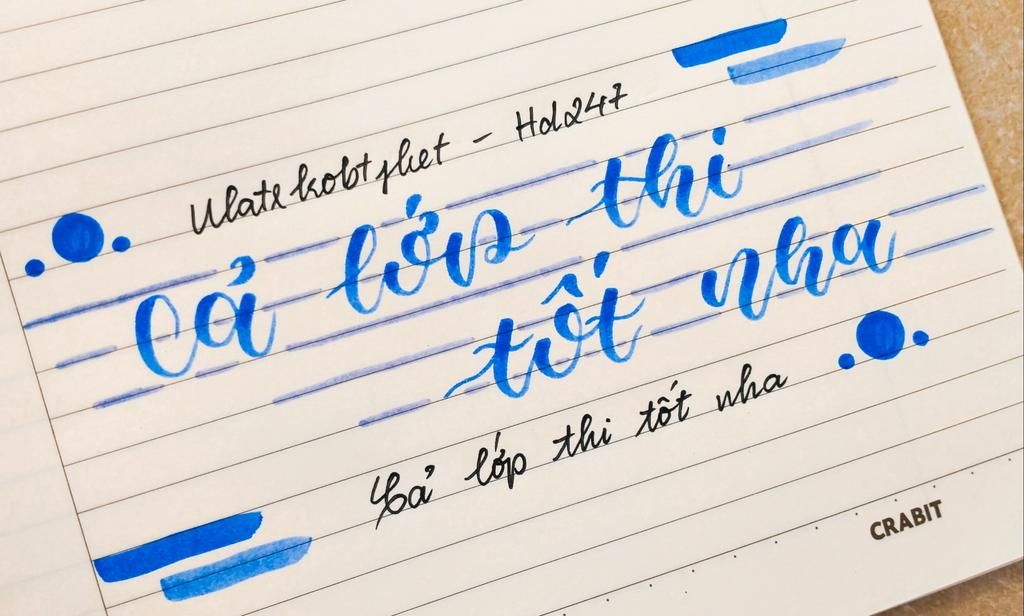 - Hd247
Cả lớp thi
tốt nha
Cả lớp thi tốt nha
CRABIT